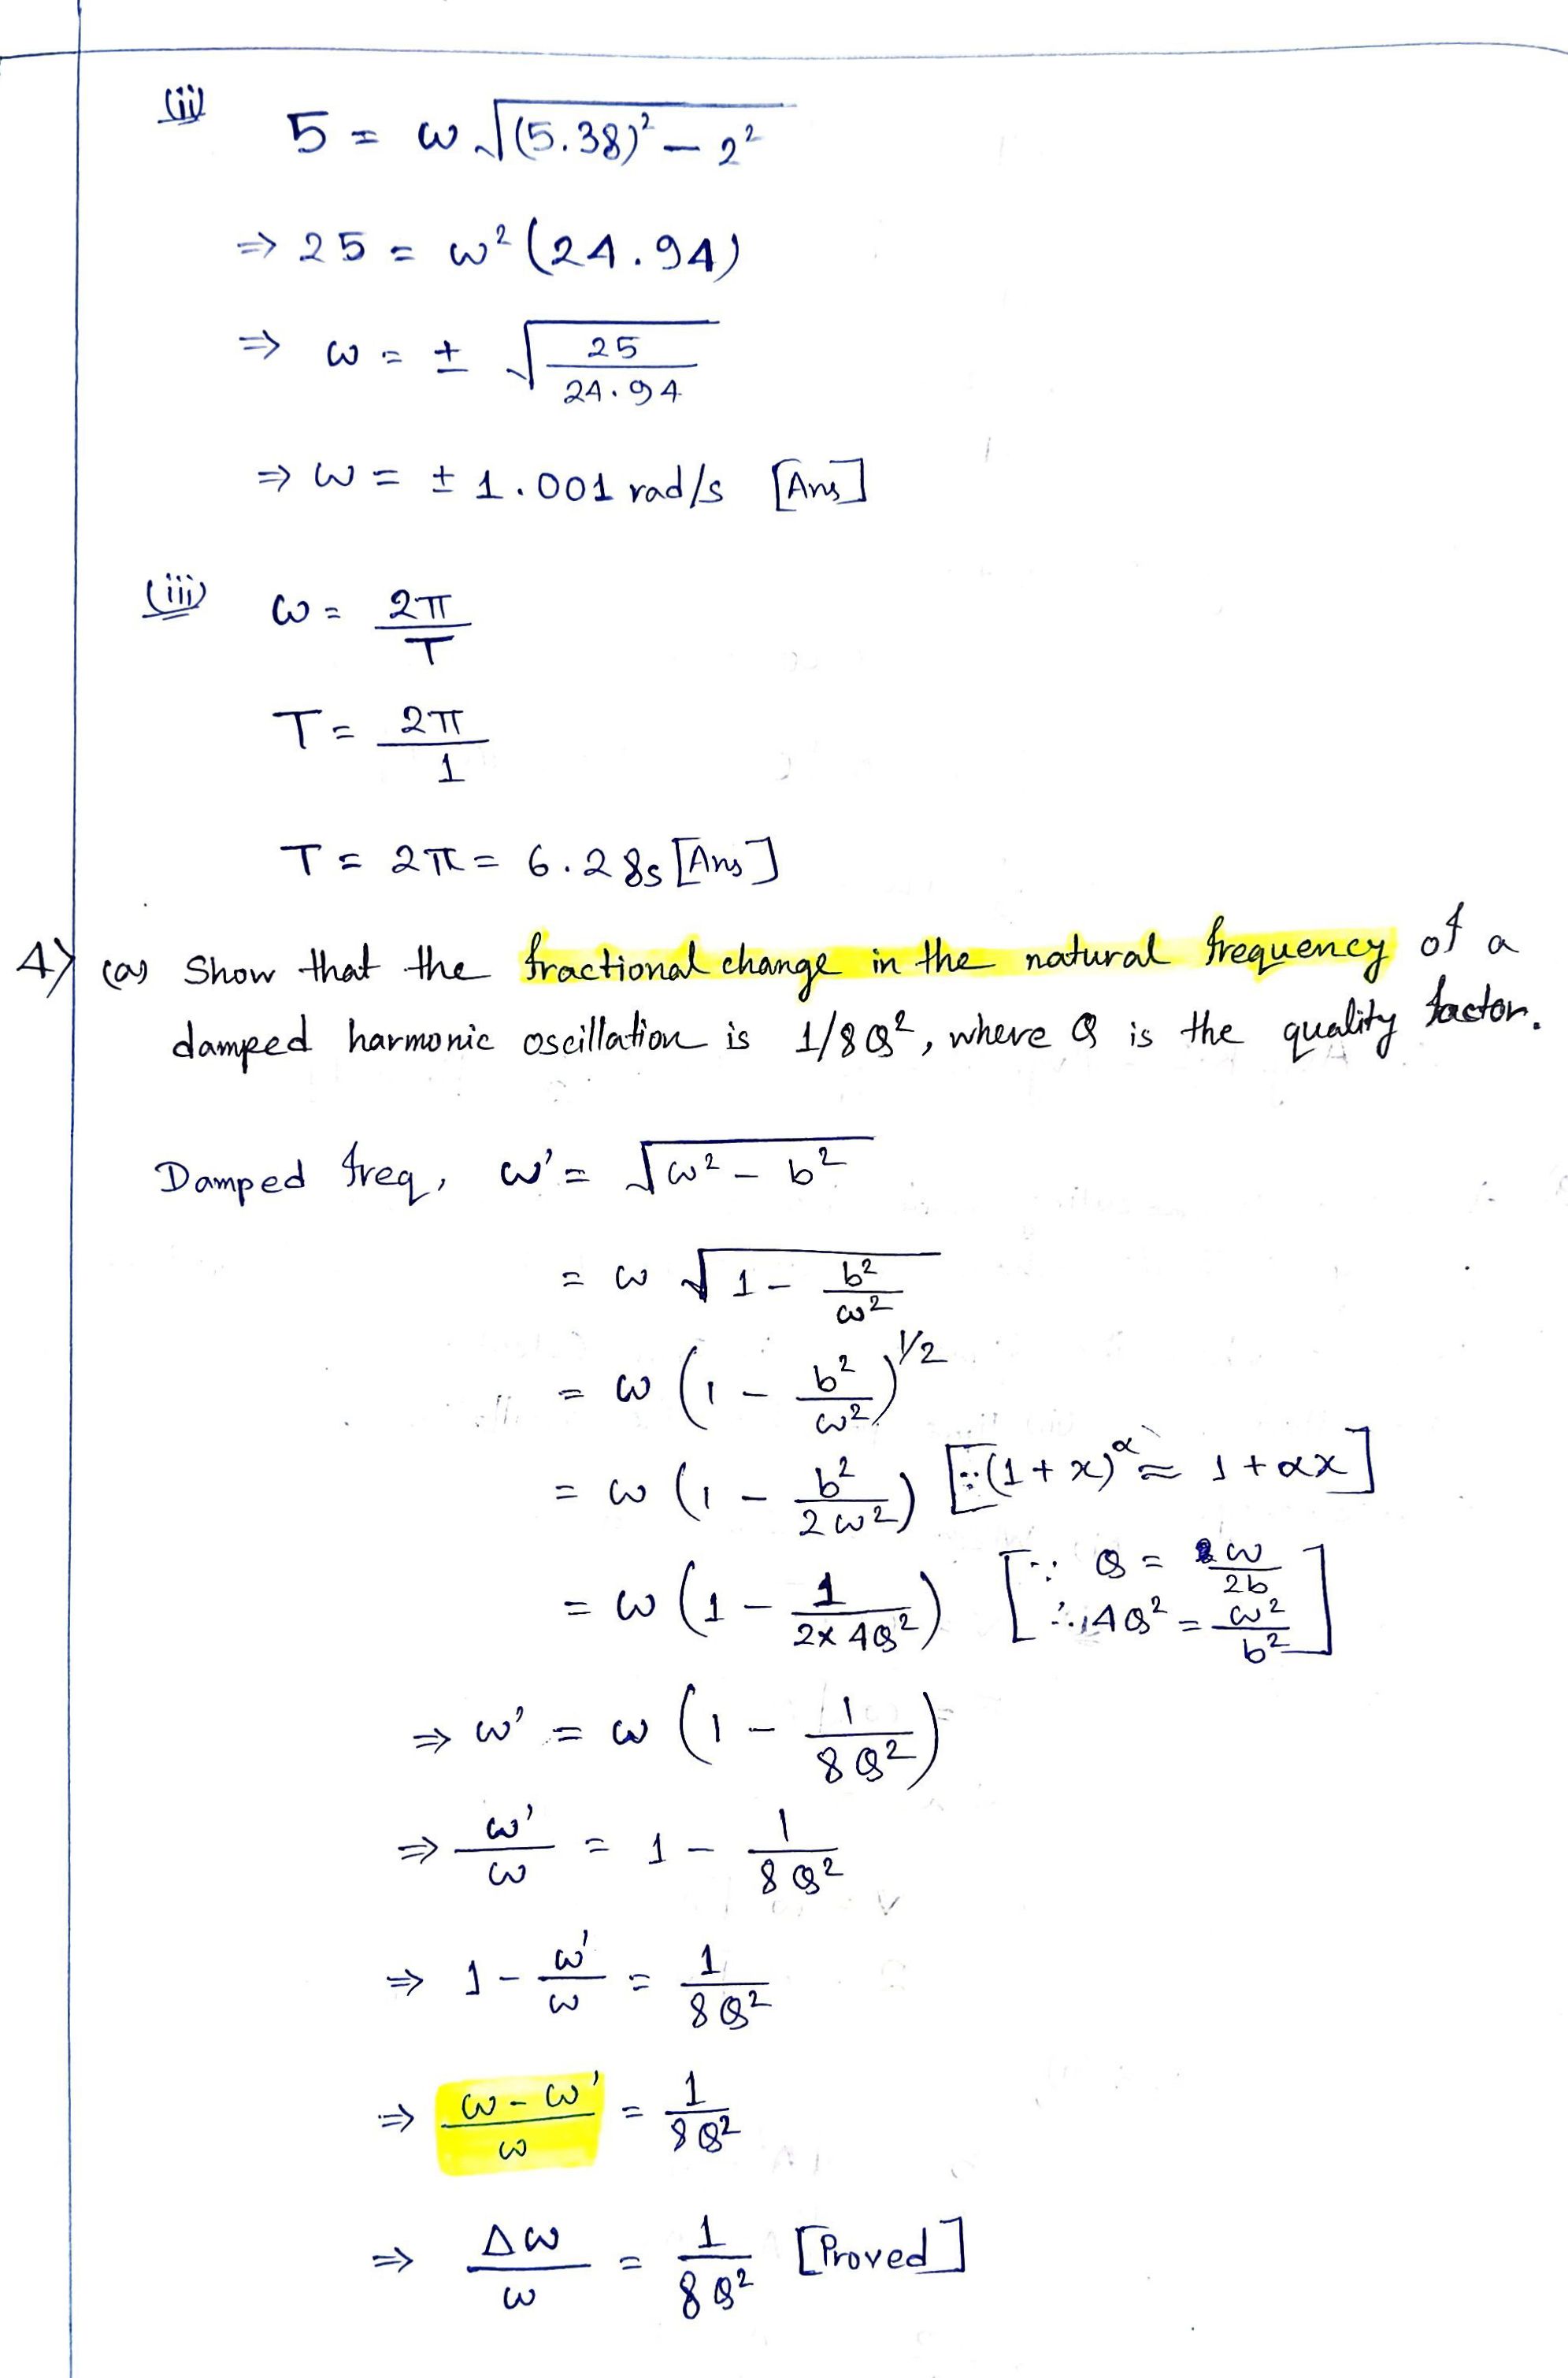 (ii) 5 = ω √((5.38)² − 2²)
⇒ 25 = ω² (24.94)
⇒ ω = ± √(25/24.94)
⇒ ω = ± 1.001 rad/s [Ans]
(iii) ω = 2π/T
T = 2π/1
T = 2π = 6.28s [Ans]
4) (a) Show that the fractional change in the natural frequency of a
damped harmonic oscillation is 1/8Q², where Q is the quality factor.
Damped freq, ω' = √(ω² − b²)
= ω √(1 − b²/ω²)
= ω (1 − b²/ω²)^1/2
= ω (1 − b²/2ω²) [∵ (1 + x)^α ≈ 1 + αx]
= ω (1 − 1/(2×4Q²)) [∵ Q = ω/2b ∴ 4Q² = ω²/b²]
⇒ ω' = ω (1 − 1/8Q²)
⇒ ω'/ω = 1 − 1/8Q²
⇒ 1 − ω'/ω = 1/8Q²
⇒ (ω − ω')/ω = 1/8Q²
⇒ Δω/ω = 1/8Q² [Proved]